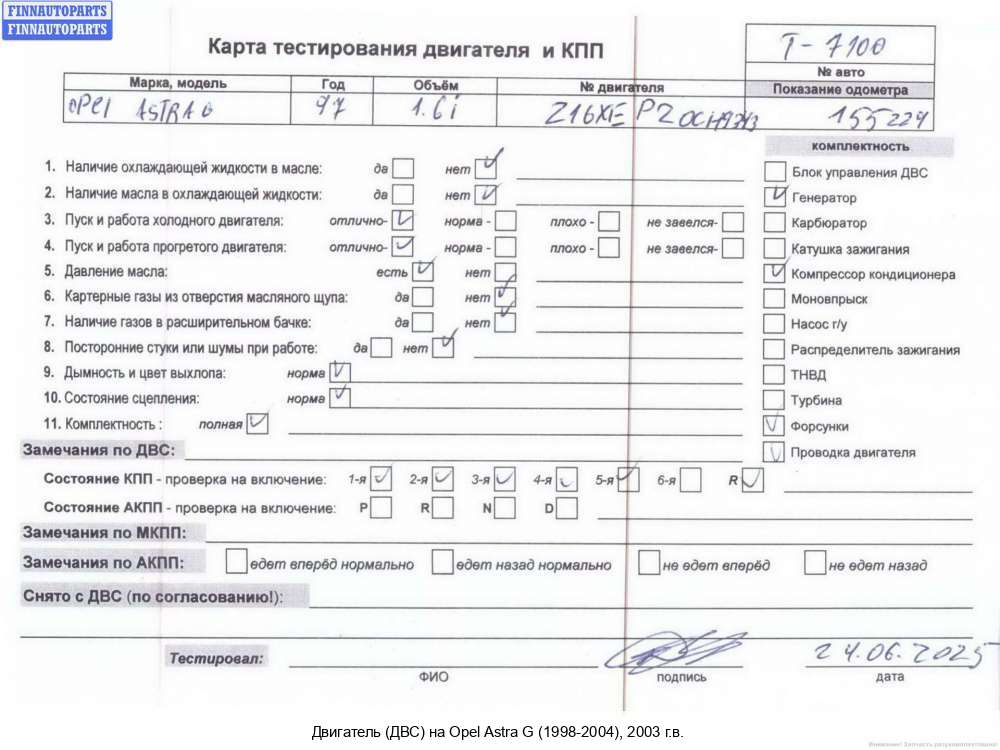 FINNAUTOPARTS
FINNAUTOPARTS
Карта тестирования двигателя и КПП
T-7100
№ авто
Марка, модель Год Объём № двигателя Показание одометра
OPEl ASTRA G 97 1.6i Z16XE 155224
комплектность
1. Наличие охлаждающей жидкости в масле: да нет
Блок управления ДВС
2. Наличие масла в охлаждающей жидкости: да нет
Генератор
3. Пуск и работа холодного двигателя: отлично- норма - плохо - не завелся-
Карбюратор
4. Пуск и работа прогретого двигателя: отлично- норма - плохо - не завелся-
Катушка зажигания
5. Давление масла: есть нет
Компрессор кондиционера
6. Картерные газы из отверстия масляного щупа: да нет
Моновпрыск
7. Наличие газов в расширительном бачке: да нет
Насос г/у
8. Посторонние стуки или шумы при работе: да нет
Распределитель зажигания
9. Дымность и цвет выхлопа: норма
ТНВД
10. Состояние сцепления: норма
Турбина
11. Комплектность : полная
Форсунки
Замечания по ДВС:
Проводка двигателя
Состояние КПП - проверка на включение: 1-я 2-я 3-я 4-я 5-я 6-я R
Состояние АКПП - проверка на включение: P R N D
Замечания по МКПП:
Замечания по АКПП: едет вперёд нормально едет назад нормально не едет вперёд не едет назад
Снято с ДВС (по согласованию!):
Тестировал: 24.06.2025
ФИО подпись дата
Двигатель (ДВС) на Opel Astra G (1998-2004), 2003 г.в.
Внимание! Запчасть разукомплектована!